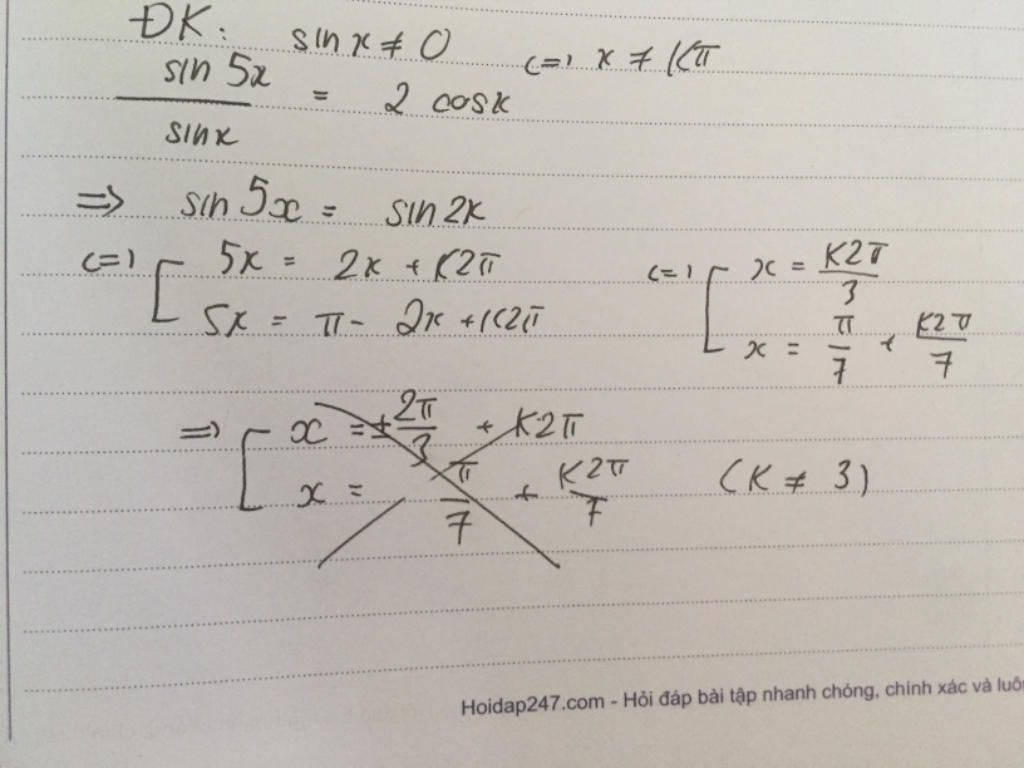 ĐK: sin x ≠ 0 <=> x ≠ Kπ
sin 5x / sin x = 2 cos x
=> sin 5x = sin 2x
<=> [ 5x = 2x + K2π <=> [ x = K2π/3
5x = π - 2x + K2π x = π/7 + K2π/7
=> [ x = ± 2π/3 + K2π
x = π/7 + K2π/7 (K ≠ 3)
Hoidap247.com - Hỏi đáp bài tập nhanh chóng, chính xác và luôn